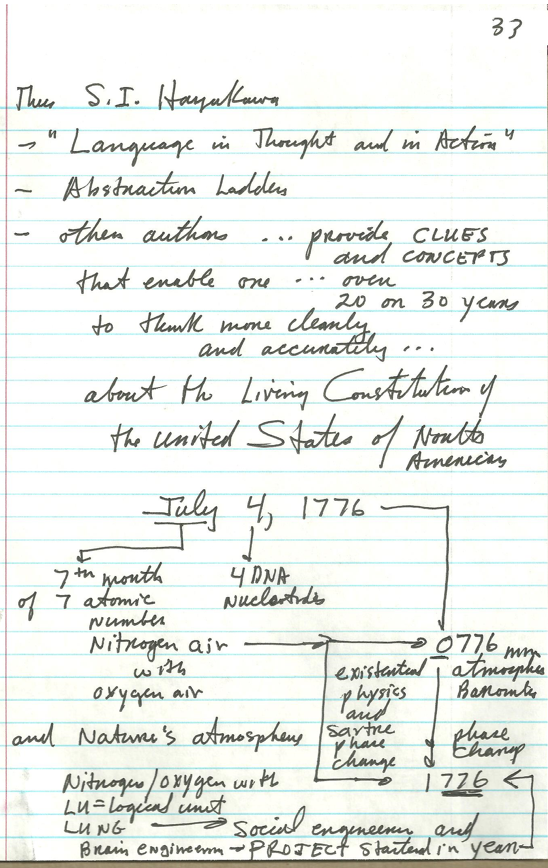 33
Thus S.I. Hayakawa
→ "Language in Thought and in Action"
- Abstraction Ladders
- other authors ... provide CLUES
and CONCEPTS
that enable one ... over
20 or 30 years
to think more clearly
and accurately ...
about the Living Constitution of
the united States of North
Americas
July 4, 1776
7th month
of 7 atomic
number
Nitrogen air
with
oxygen air
4 DNA
Nucleotides
0776 mm
atmospheric
Barometer
existential
physics
and
sartre
phase
change
phase
change
and Nature's atmosphere
1776
Nitrogen/oxygen with
LU = logical unit
LUNG → Social engineer and
Brain engineer → PROJECT started in year